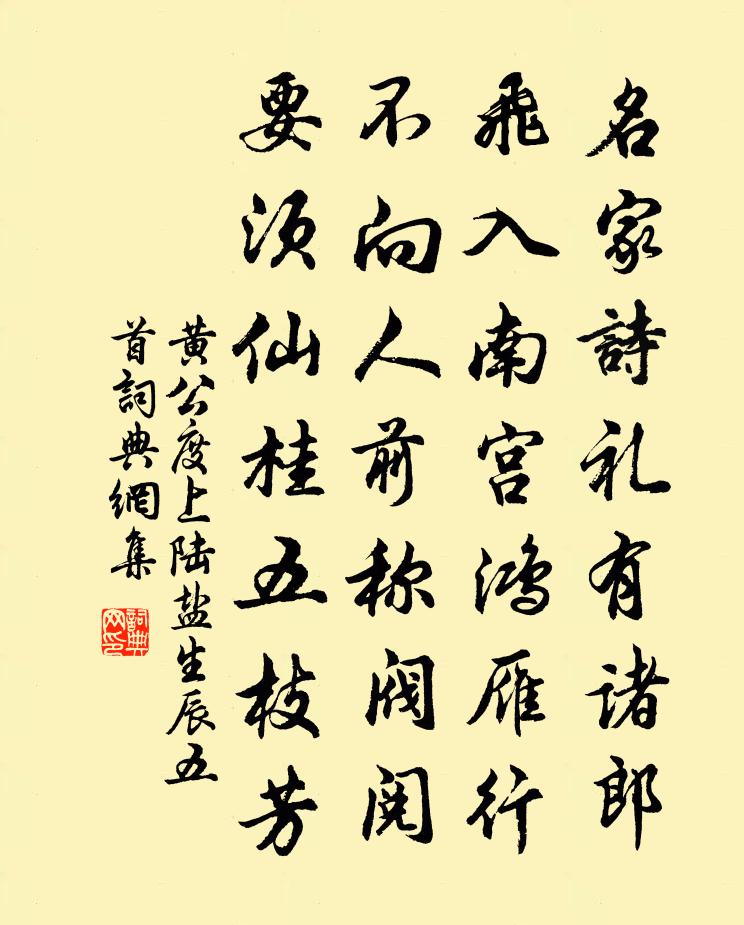 名家詩礼有诸郎
飛入南宫鸿雁行
不向人前称阀阅
要须仙桂五枝芳
黄公度上陆盐生辰五
首詞典網集
詞典网印